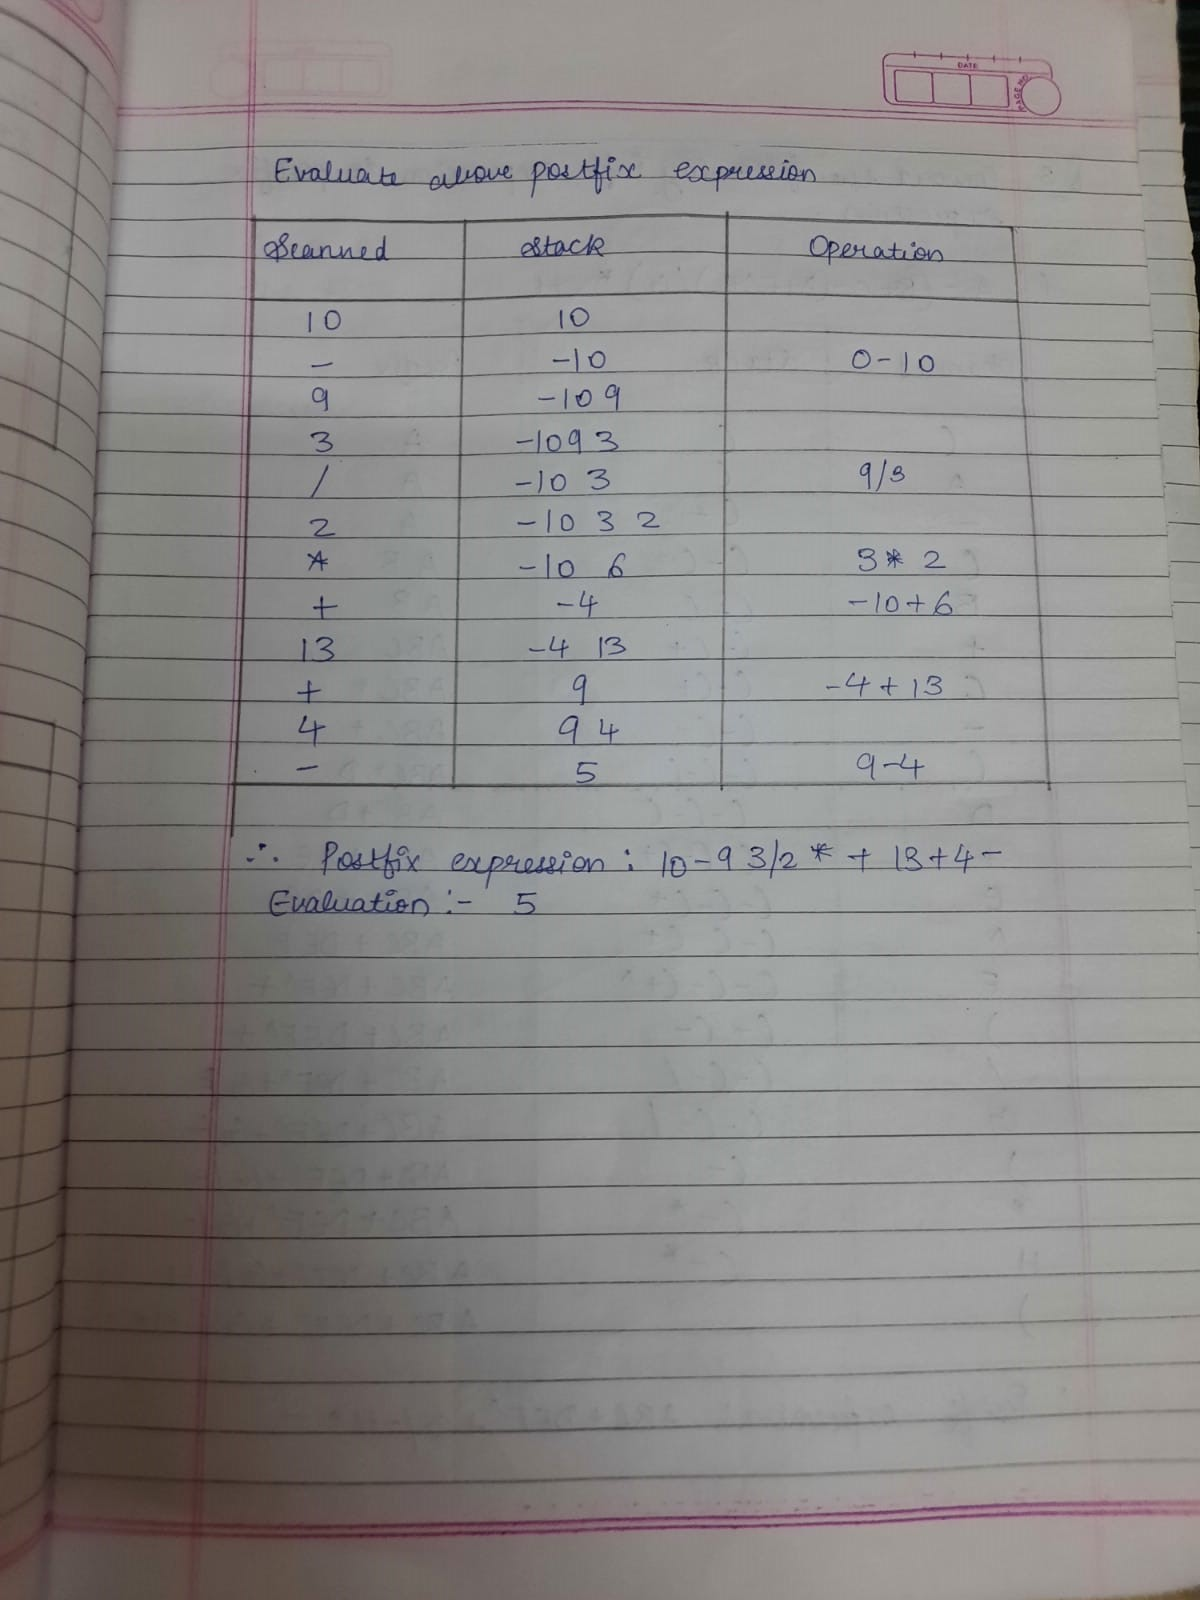 DATE
PAGE NO
Evaluate above postfix expression
Scanned Stack Operation
10 10
- -10 0-10
9 -10 9
3 -10 9 3
/ -10 3 9/3
2 -10 3 2
* -10 6 3*2
+ -4 -10+6
13 -4 13
+ 9 -4+13
4 9 4
- 5 9-4
∴ Postfix expression: 10-9 3/2*+13+4-
Evaluation:- 5